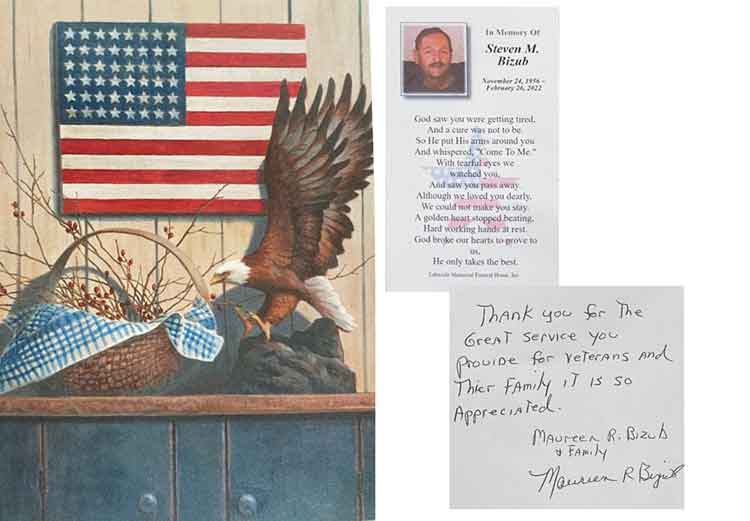 In Memory Of
Steven M.
Bizub
November 24, 1956 ~
February 26, 2022
God saw you were getting tired,
And a cure was not to be.
So He put His arms around you
And whispered, "Come To Me."
With tearful eyes we
watched you,
And saw you pass away.
Although we loved you dearly,
We could not make you stay.
A golden heart stopped beating,
Hard working hands at rest.
God broke our hearts to prove to
us,
He only takes the best.
Lakeside Memorial Funeral Home, Inc
Thank you for The
Great Service you
Provide for Veterans and
Thier Family it is so
Appreciated.
Maureen R. Bizub
& Family
Maureen R Bizub